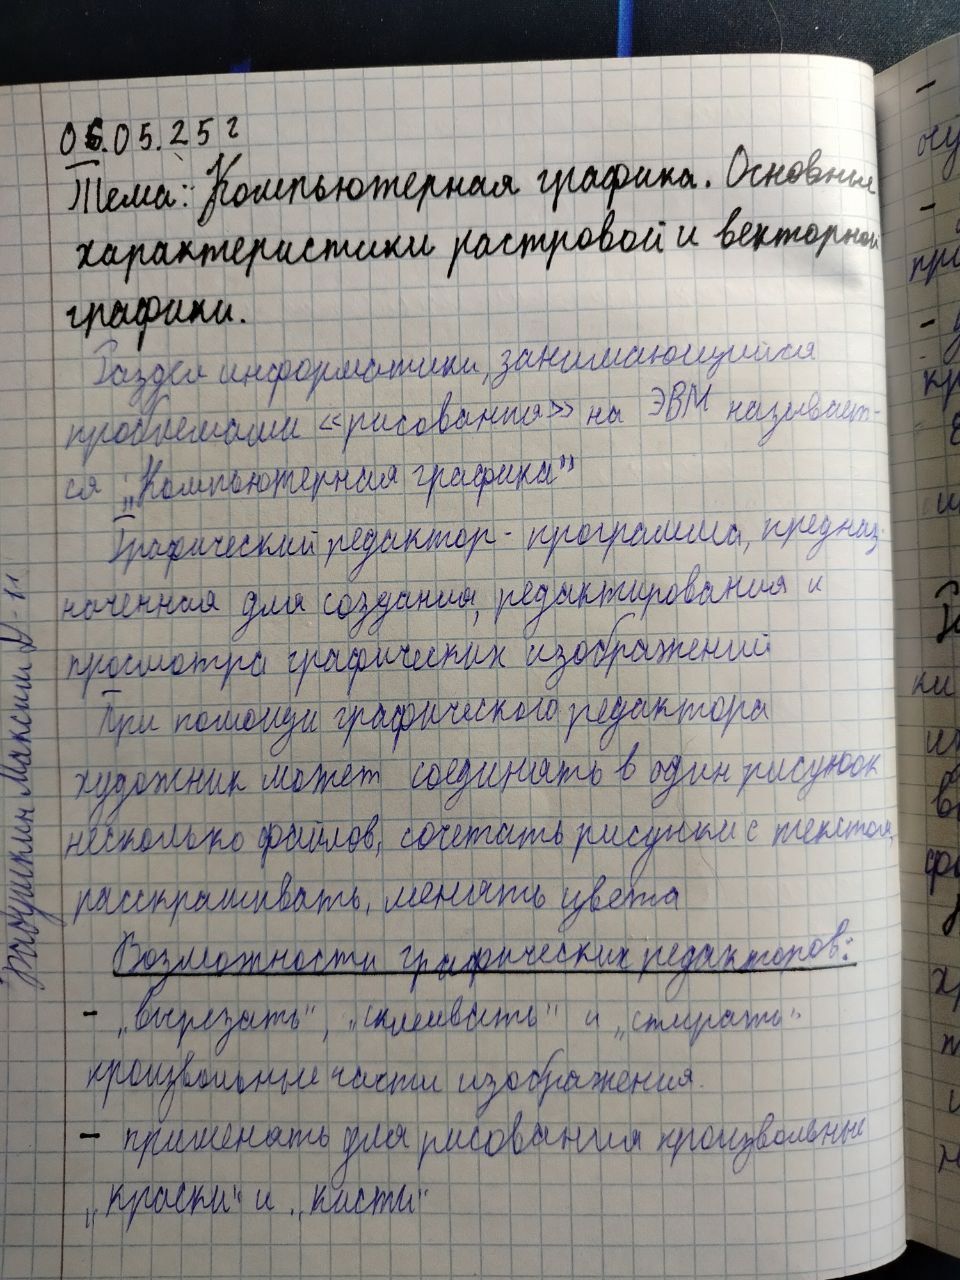 06.05.25 г
Тема: Компьютерная графика. Основные
характеристики растровой и векторной
графики.
Раздел информатики, занимающийся
проблемами «рисования» на ЭВМ называет-
ся „Компьютерная графика"
Графический редактор - программа, предназ-
наченная для создания, редактирования и
просмотра графических изображений
При помощи графического редактора
художник может соединять в один рисунок
несколько файлов, сочетать рисунки с текстом,
расскрашивать, менять цвета
Возможности графических редакторов:
- „вырезать", „склеивать" и „стирать"
произвольные части изображения.
- применять для рисования произвольные
„краски" и „кисти"
Максим